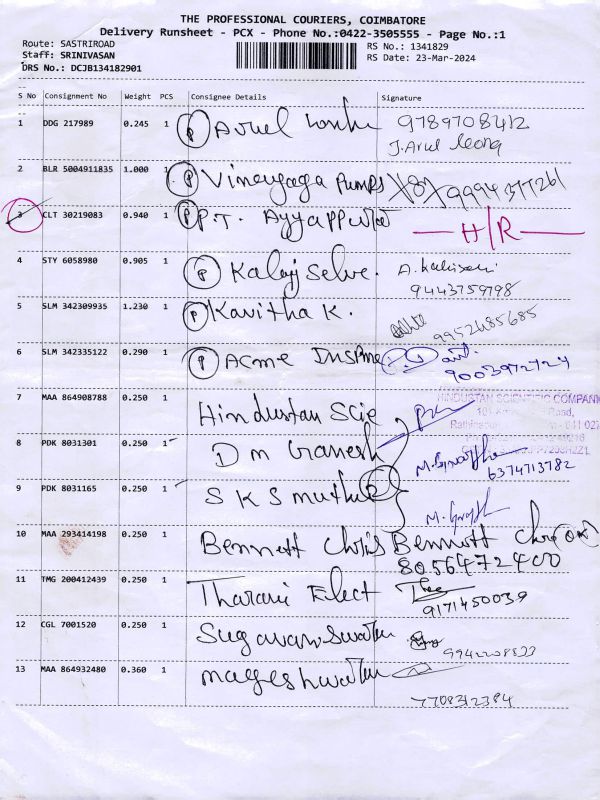 THE PROFESSIONAL COURIERS, COIMBATORE
Delivery Runsheet - PCX - Phone No.:0422-3505555 - Page No.:1
Route: SASTRIROAD RS No.: 1341829
Staff: SRINIVASAN RS Date: 23-Mar-2024
DRS No.: DCJB134182901
S No Consignment No Weight PCS Consignee Details Signature
1 DDG 217989 0.245 1 P Arul 9789708412
J. Arul
2 BLR 5004911835 1.000 1 P Vinayaga Pumps 9994377261
3 CLT 30219083 0.940 1 P P.T. H/R
4 STY 6058980 0.905 1 P Kalaj Selve. A.
9443759798
5 SLM 342309935 1.230 1 P Kavitha K.
9952485685
6 SLM 342335122 0.290 1 P Acme
9003972724
7 MAA 864908788 0.250 1 Hindustan Scie HINDUSTAN SCIENTIFIC COMPANY
Road,
8 PDK 8031301 0.250 1 D M Ganesh M.
6374713782
9 PDK 8031165 0.250 1 S K S Muthu M.
10 MAA 293414198 0.250 1 Bennett Chris Bennett
8056472400
11 TMG 200412439 0.250 1 Tharani Elect
9171450039
12 CGL 7001520 0.250 1
13 MAA 864932480 0.360 1
7708312384